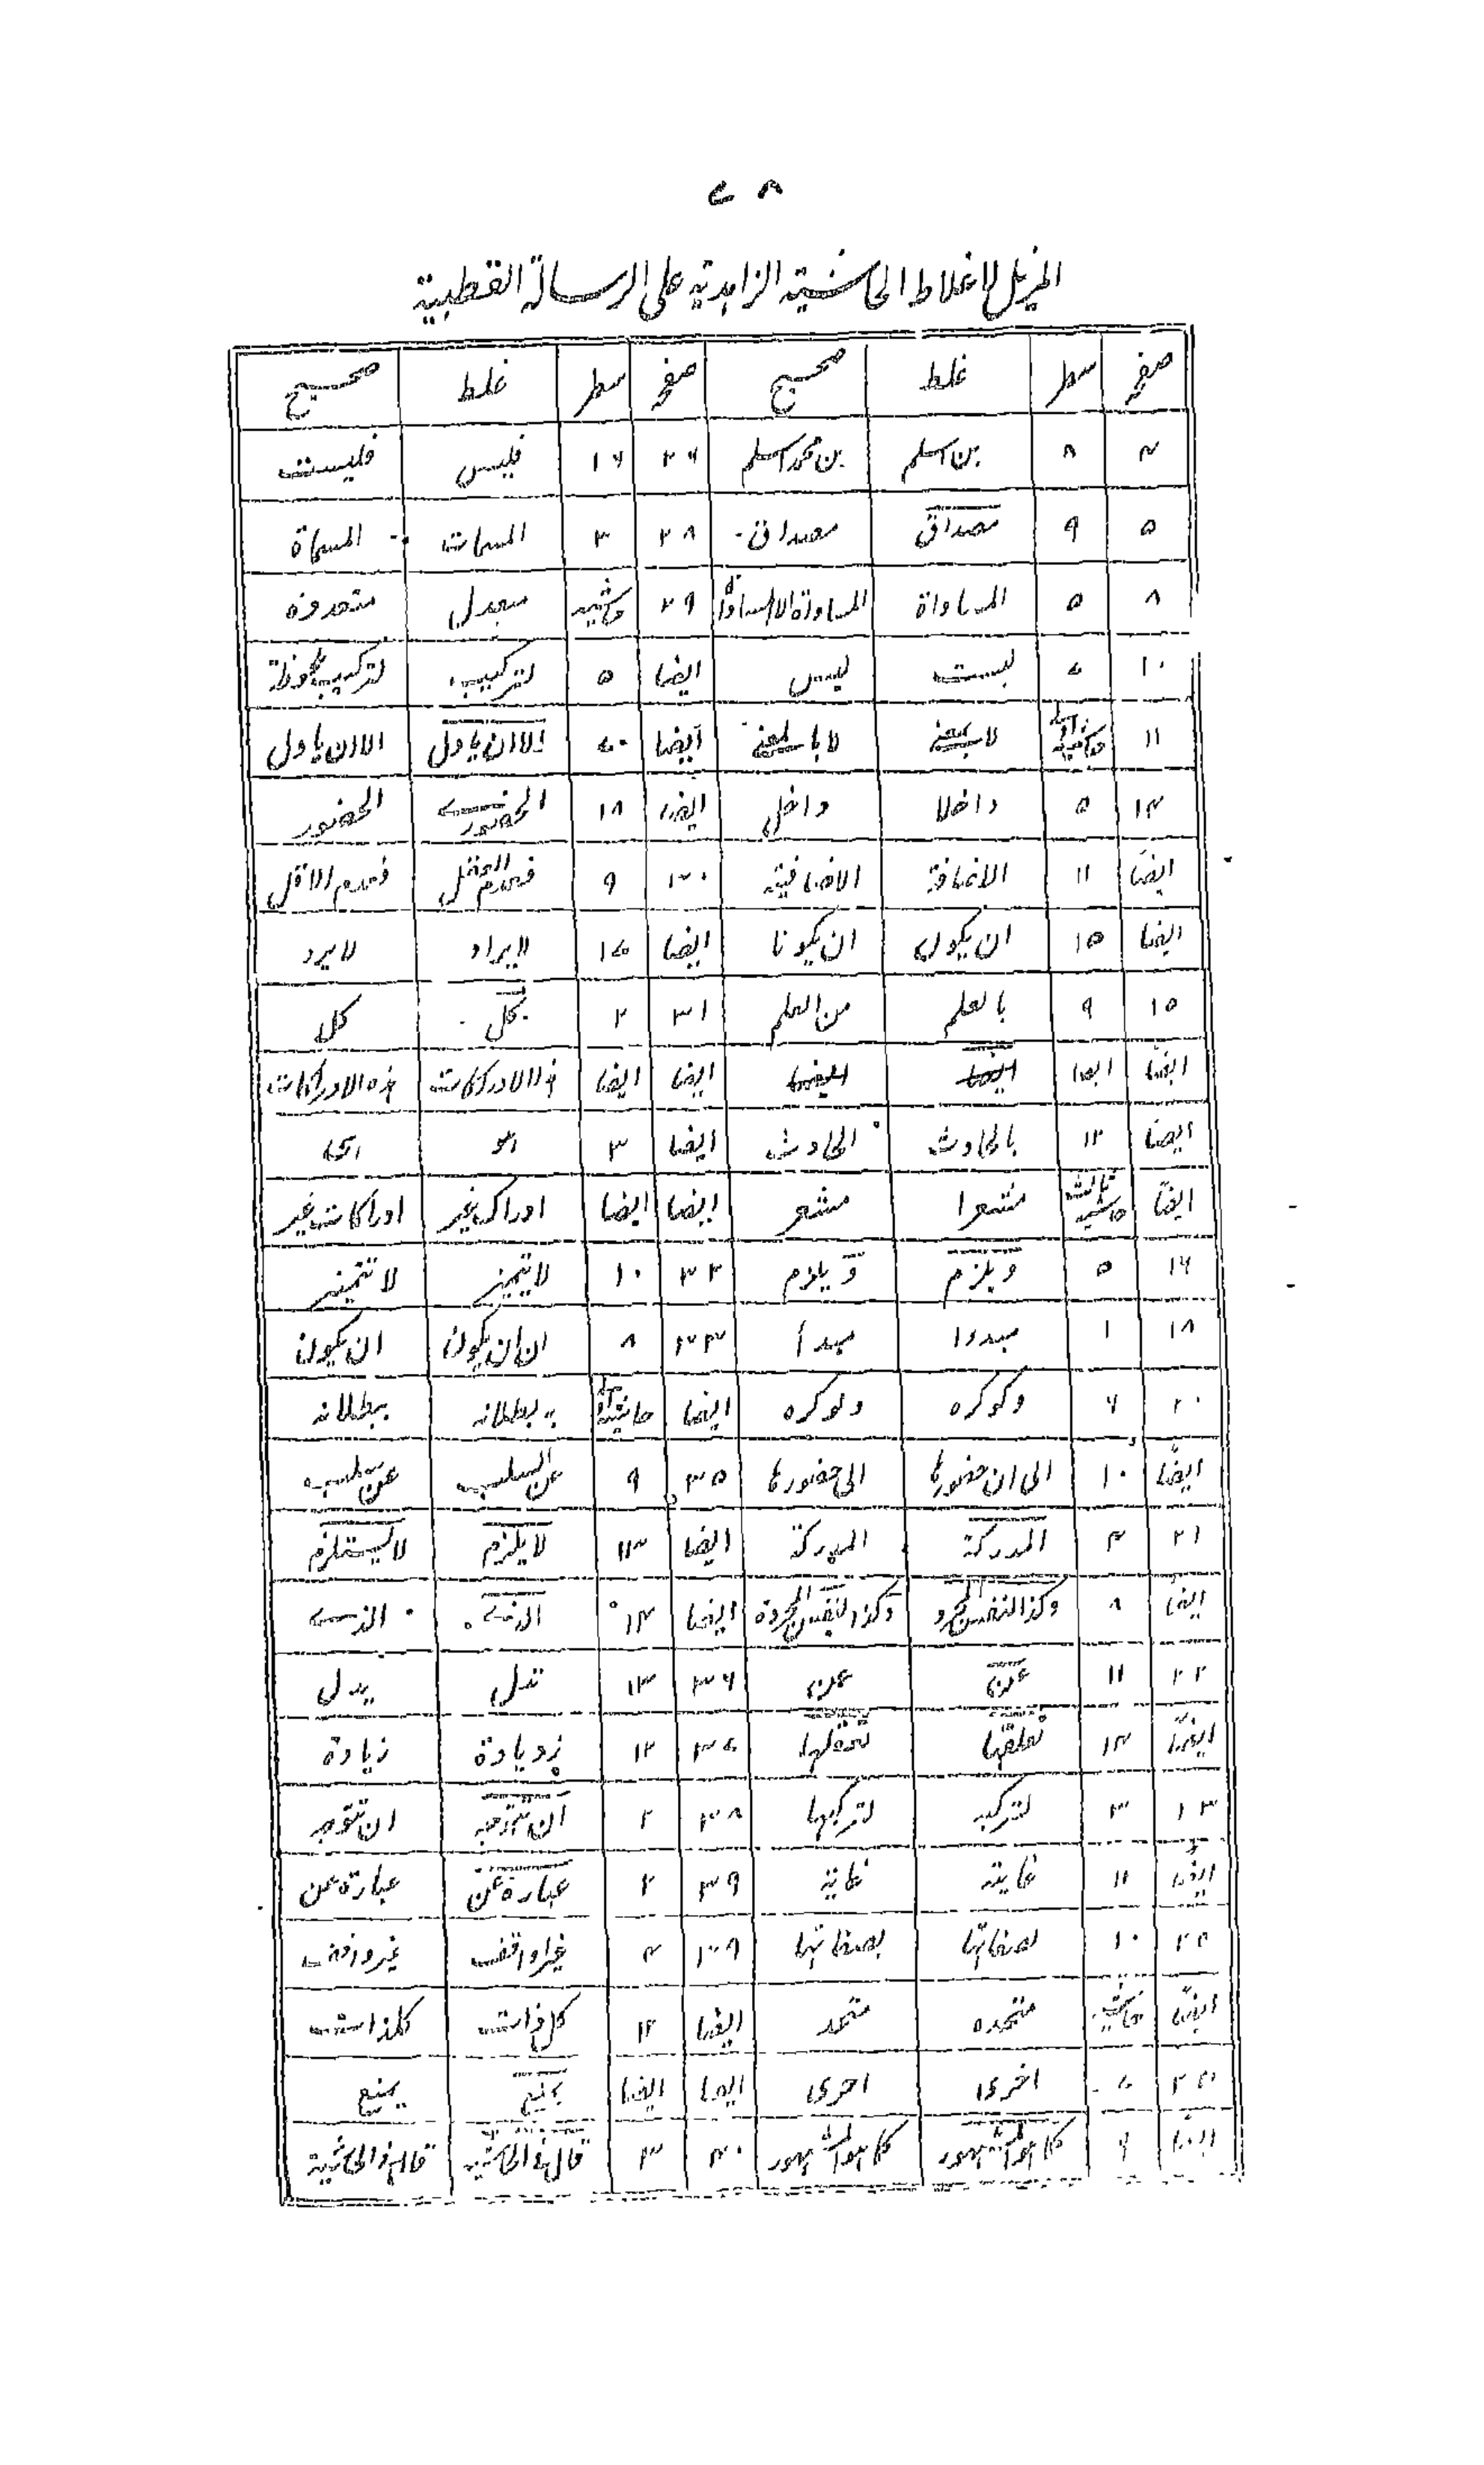 ٧٨
المزيل لاغلاط الحاشية الزاهدية على الرسالة القطبية
صفحہ سطر غلط صحيح صفحہ سطر غلط صحيح
٤ ٨ بن اسلم بن محمد اسلم ٢٦ ١٦ فليس فليست
٥ ٩ مصداق مصداق ٢٨ ٣ المسمات المسماة
٨ ٥ المساواة ٢٩ حاشيه
١٠ ٧ ليست ليس ايضا ٥ لتركيب
١١ ايضا ٢٠ الا ان ياول الا ان ياول
١٤ ٥ داخلا داخل ايضا ١٨ الحضورے الحضور
ايضا ١١ الاضافة الاضافية ٣٠ ٩ فعدم العقل فعدم الاقل
ايضا ١٥ ان يكون ان يكونا ايضا ١٧ لايراد لا يرد
١٥ ٩ بالعلم من العلم ٣١ ٢ بكل كل
ايضا ايضا ايضا ايضا هذه الادراكات
ايضا ١٢ بالحادث الحادث ايضا ٣
ايضا ثالث حاشيه مشعرا مشعر ايضا ايضا ادراك غير ادراكات غير
١٦ ٥ ويلزم ويلزم ٣٢ ١٠ لا يتميز لا تتميز
١٨ ١ مبدءا مبدأ ٣٣ ٨ ان ان يكون ان يكون
٢٠ ٦ وكوكره ولوكره ايضا به بطلانه ببطلانه
ايضا ١٠ الى ان حضورها الى حضورها ٣٥ ٩ عن السلب عن سلب
٢١ ٤ المدركة المدركة ايضا ١٣ لا يلزم لا يستلزم
ايضا ٨ وكذا النفس المجرد وكذا النفس المجردة ايضا ١٤ الذے الذے
٢٢ ١١ عن عن ٣٦ ١٣ تدل يدل
ايضا ١٤ تعلقها تعقلها ٣٧ ١٢ زد يادة زيادة
٣ لتركبه لتركبها ٣٨ ٢ ان تتوجه ان تتوجه
ايضا ١١ غايته غاية ٣٩ ٢ عبارة عن عبارة عن
٢٥ ١٠ لصفاتها بصفاتها ٣٩ ٤ غير اواقف غير واقف
ايضا حاشيه متحده متحد ايضا ١٢ كل ذات كلذات
٧ اخرى احرى ايضا ايضا يمنع يمنع
ايضا ٦ كما هو المشهور كما هو المشهور ٤٠ ٣ قال فى الحاشيه قال فى الحاشية